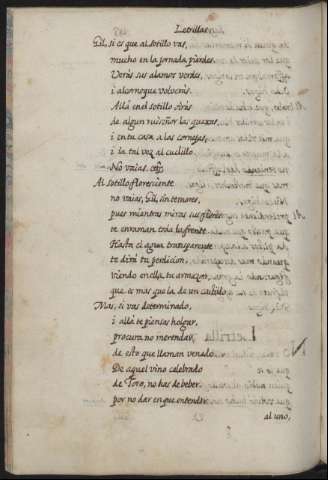 Letrillas
Gil, si es que al sotillo vas,
mucho en la jornada pierdes.
Verás sus alamos verdes,
i alcornoque volverás.
Allá en el sotillo oirás
de algun ruiseñor las quexas,
i en tu casa a las cornejas,
i tal vez al cuclillo.
No vaias, &c.
Al sotillo floreciente
no vaias, Gil, sin temores,
pues mientras miras sus flores
te enraman toda la frente.
Hasta el agua transparente
te dirá tu perdicion,
viendo en ella tu armazon,
que es mas que la de un castillo.
Mas, si vas determinado,
i allá te piensas holgar,
procura no merendar
de esto que llaman venado.
De aquel vino celebrado
de Toro, no has de beber,
por no dar en que entender
al uno,